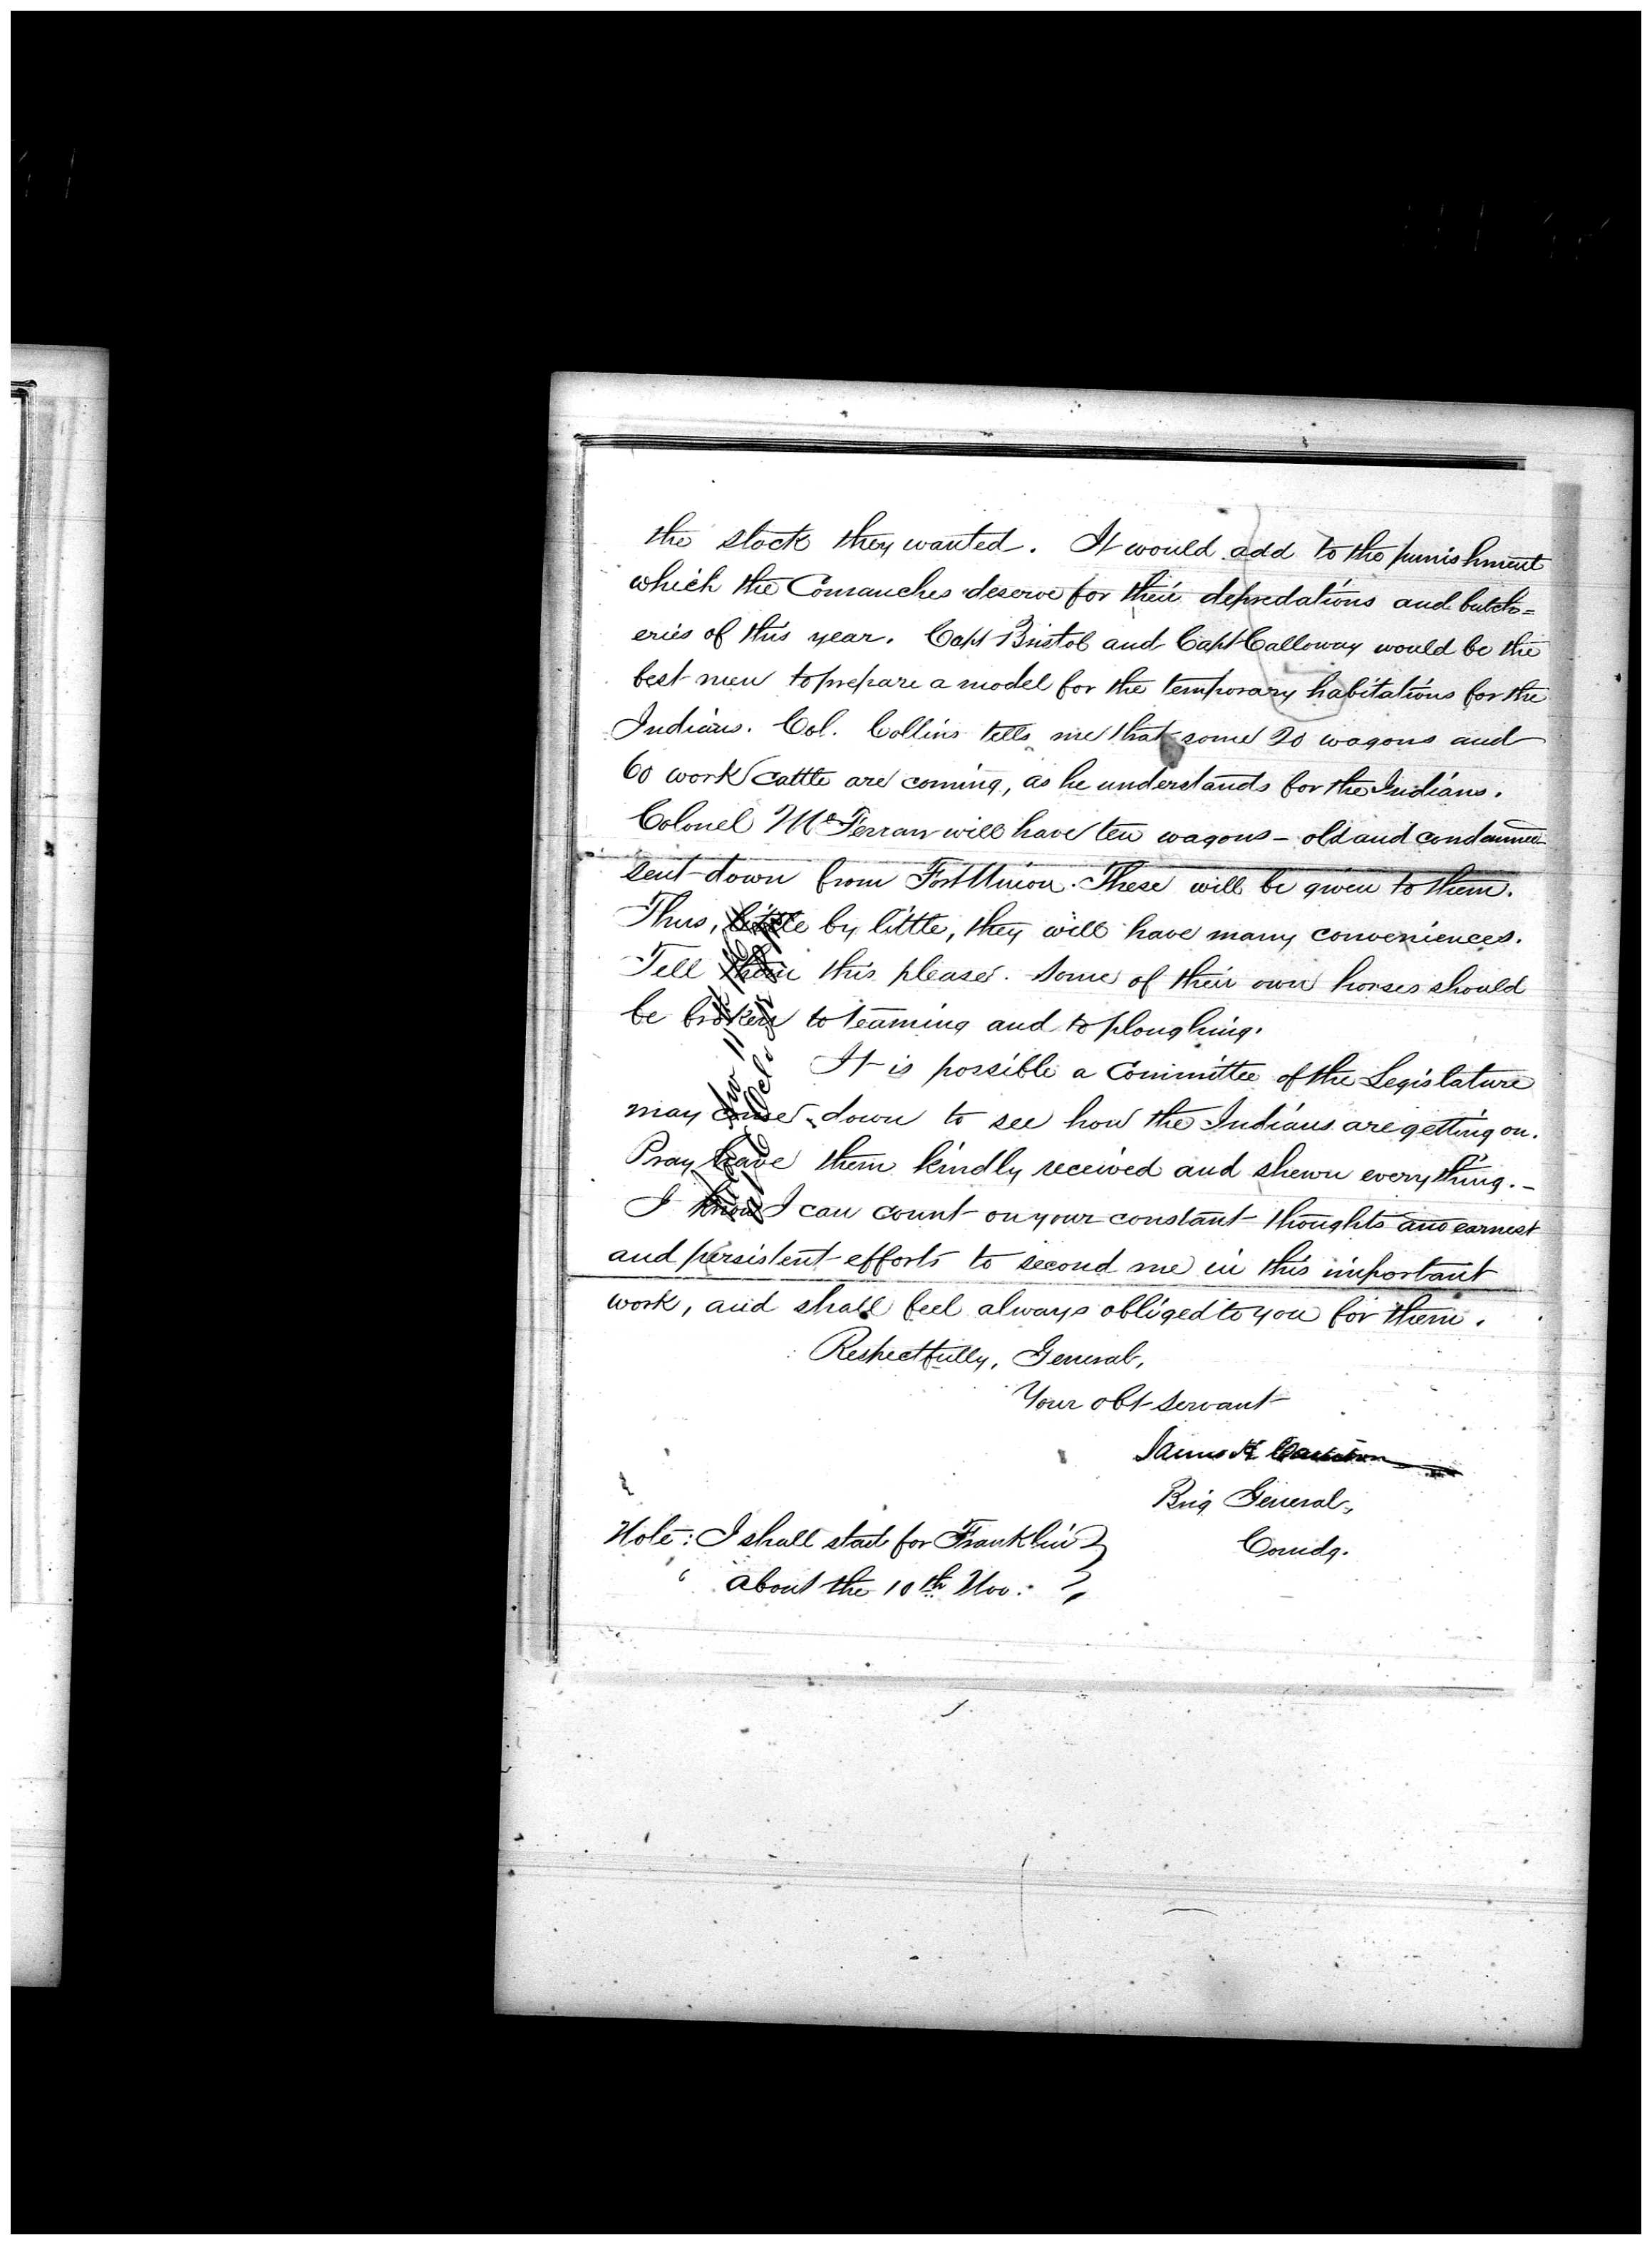 the stock they wanted. It would add to the punishment
which the Comanches deserve for their depredations and butch=
eries of this year. Capt Bristol and Capt Calloway would be the
best men to prepare a model for the temporary habitations for the
Indians. Col. Collins tells me that some 20 wagons and
60 work cattle are coming, as he understands for the Indians.
Colonel McFerran will have ten wagons - old and condemned
sent down from Fort Union. These will be given to them.
Thus, little by little, they will have many conveniences.
Tell them this please. Some of their own horses should
be broken to teaming and to ploughing.
It is possible a Committee of the Legislature
may come down to see how the Indians are getting on.
Pray have them kindly received and shewn every thing. -
I know I can count on your constant thoughts and earnest
and persistent efforts to second me in this important
work, and shall feel always obliged to you for them.
Respectfully, General,
Your obt servant
James H Carleton
Brig General,
Comdg.
Note: I shall start for Franklin
about the 10th Nov.